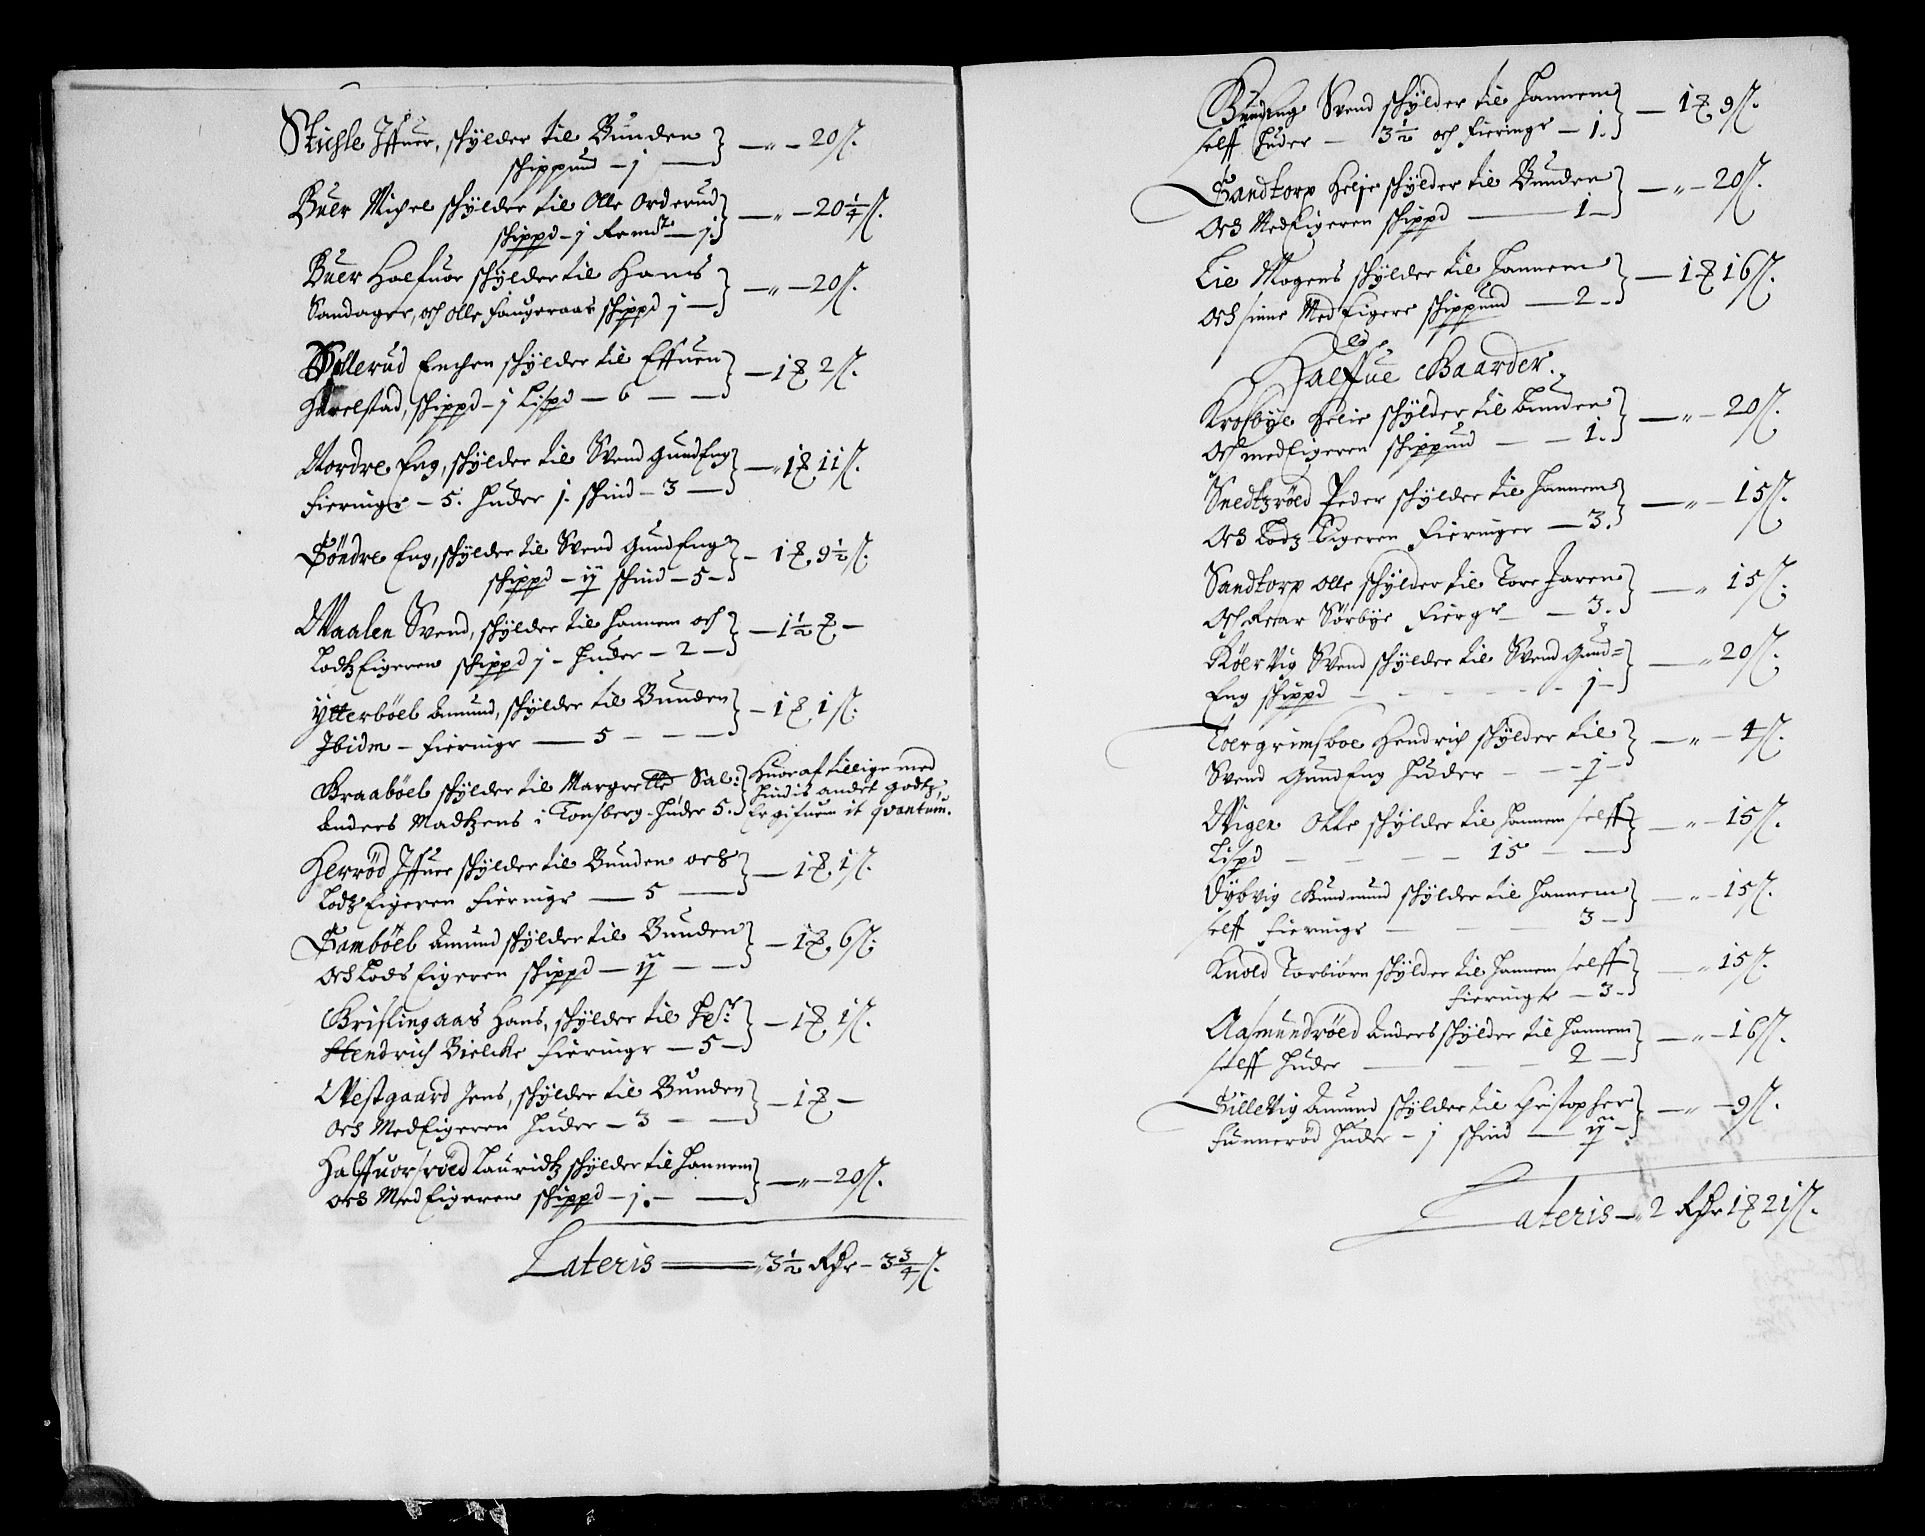 Stichle Iffuer, schylder til Bunden
schippund – j — } — „ – 20 ß.
Buer Michel schylder til Olle Orderud
schippd – j Remdt — j. } — „ – 20¼ ß.
Buer Halfuor schylder til Hans
Sandager, och Olle Haugeraas schippd j — } — „ – 20 ß.
Enchen schylder til Effuen
Harelstad, schippd – j Lispd – 6 – — } — 1 ℥ 2 ß.
Nordre Eng, schylder til Svend GundEng
fieringr – 5. Huder j. schind – 3 — } — „ 1 ℥ 11 ß.
Söndre Eng, schylder til Svend GundEng
schippd – ij schind – 5 – } – 1 ℥. 9½ ß.
Waalen Svend, schylder til Hannem och
LodtzEigerens schippd j – Huder – 2 – } — 1½ ℥ –
Ytterböel Amund, schylder til Bunden
Ibidm – fieringr — 5 – – — } – 1 ℥. 1 ß.
Braaböel schylder til Margrette Sal: } Huor af tillige med
Anders Madtzens i Tonsberg – Huder 5. } hindis andet godtz,
Er gifuen it qvantum.
Herröd Iffuer schylder til Bunden och
LodtzEigeren fieringr — 5 — } — 1 ℥. 1 ß.
Samböel Amund schylder til Bunden
och Lods Eigeren schippd – ij – — } – 1 ℥. 6 ß.
Brislingaas Hans, schylder til
Hendrich Bielcke fieringr – 5 – } – 1 ℥ 1 ß.
Westgaard Jens, schylder til Bunden
och MedEigeren Huder – 3 – — } – 1 ℥ –
Halffuorsröed Lauridtz schylder til Hannem
och MedEigeren schippd – j. – — } — „ – 20 ß.
Lateris ——— „ 3½ Rdr – 3¾ ß.
GundEng Svend schylder til Hannem
self Huder — 3½ och fieringr – 1. } — 1 ℥ 9 ß.
Sandtorp Helje schylder til Bunden
och MedEigeren schippd — 1 – } — „ – 20 ß.
Lie Mogens schylder til Hannem
och sinne MedEigere schippund — 2 – } — 1 ℥ 16 ß.
Halffue Gaarder.
Krosbye Helie schylder til bunden
och medEigeren schippund – – 1. } — „ – 20 ß.
Snedtzröed Peder schylder til Hannem
och Lodz Eigeren fieringer — 3. } — „ – 15 ß.
Sandtorp Olle schylder til Tore Haren
och Sörbye fiergr – – 3. } — „ 15 ß.
Röervig Svend schylder til Svend Gund=
Eng schippd – – – – j – } — „ 20 ß.
Toergrimsboe Hendrich schylder til
Svend GundEng Huder – – j – } — „ – 4 ß.
Wigen Olle schylder til Hannem selff
Lispd – – – – 15 – — } — „ – 15 ß.
Dybvig Gundmund schylder til Hannem
selff fieringr – – – 3 – } — „ – 15 ß.
Knold Torbiörn schylder til Hannem selff
fieringer – 3. } — „ 15 ß.
Aasmundröed Anders schylder til Hannem
selff Huder — – – 2 – } — „ – 16 ß.
SilleVig Amund schylder til Christopher
Funneröd Huder – j schind — ij – } — „ – 9 ß.
Lateris – „ 2 Rdr 1 ℥ 21 ß.